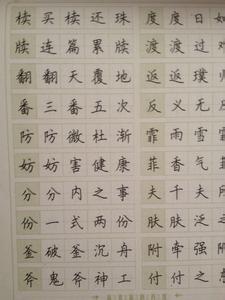 椟 买 椟 还 珠 度 度 日 如
牍 连 篇 累 牍 渡 渡 过 难
翻 翻 天 覆 地 返 返 璞 归
番 三 番 五 次 反 义 无 反
防 防 微 杜 渐 霏 雨 雪 霏
妨 妨 害 健 康 菲 香 气 菲
分 分 内 之 事 夫 千 夫
份 一 式 两 份 肤 肤 泛 之
釜 破 釜 沉 舟 附 牵 强 附
斧 鬼 斧 神 工 付 付 之